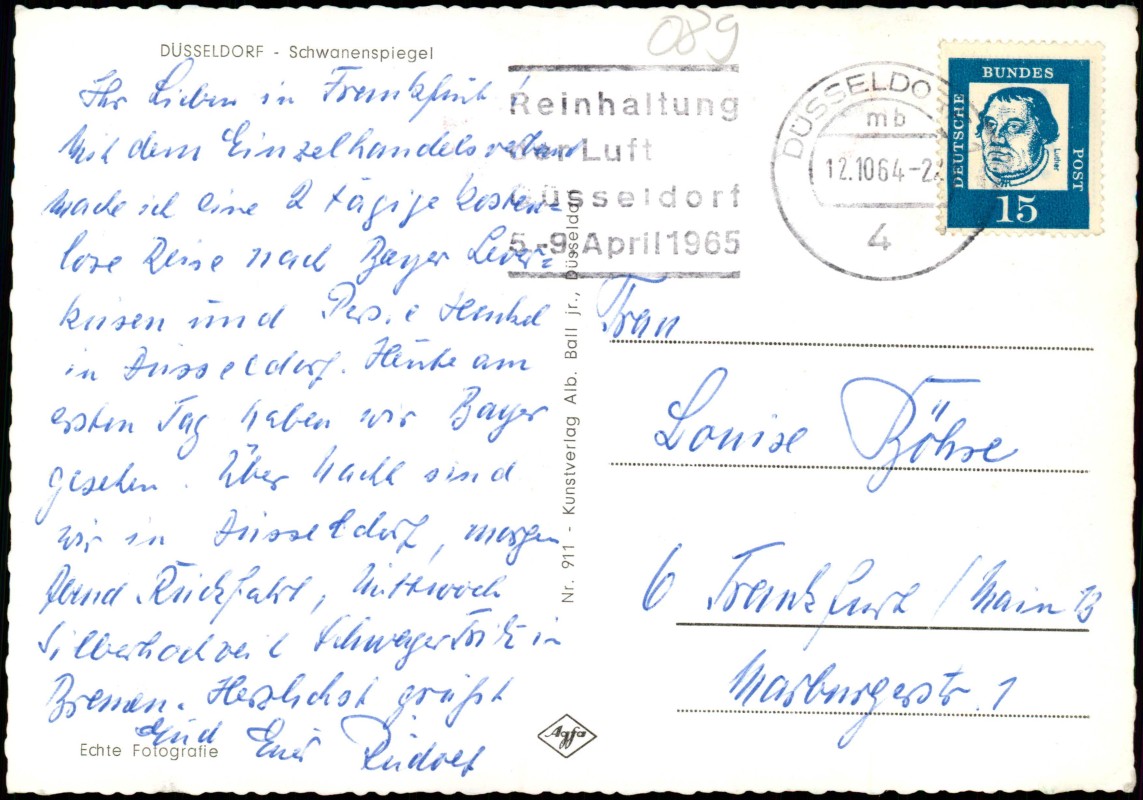 089
DÜSSELDORF - Schwanenspiegel
Ihr Lieben in Frankfurt!
Mit dem Einzelhandelsverband
mache ich eine 2 tägige kosten-
lose Reise nach Bayer Lever-
kusen und Persil Henkel
in Düsseldorf. Heute am
ersten Tag haben wir Bayer
gesehen. Über Nacht sind
wir in Düsseldorf, morgen
Abend Rückfahrt, Mittwoch
Silberhochzeit Schwager Fritz in
Bremen. Herzlichst grüßt
Euch Euer Rudolf
Echte Fotografie
Reinhaltung
der Luft
Düsseldorf
5.-9. April 1965
DÜSSELDO
mb
12.10.64-2
4
DEUTSCHE
BUNDES
POST
Luther
15
Nr. 911 - Kunstverlag Alb. Ball jr., Düsseldo
Agfa
Frau
Louise Böhse
6 Frankfurt/Main 13
Marburgerstr. 1